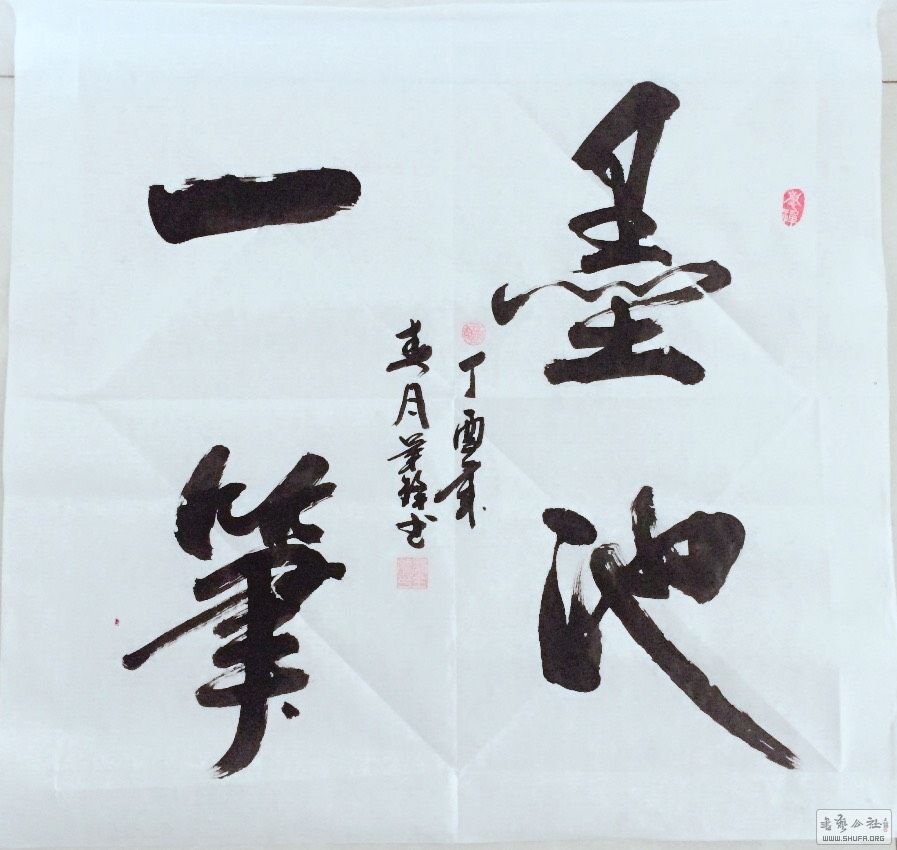 墨池
一筆
丁酉年
春月
書
書藝公社
WWW.SHUFA.ORG